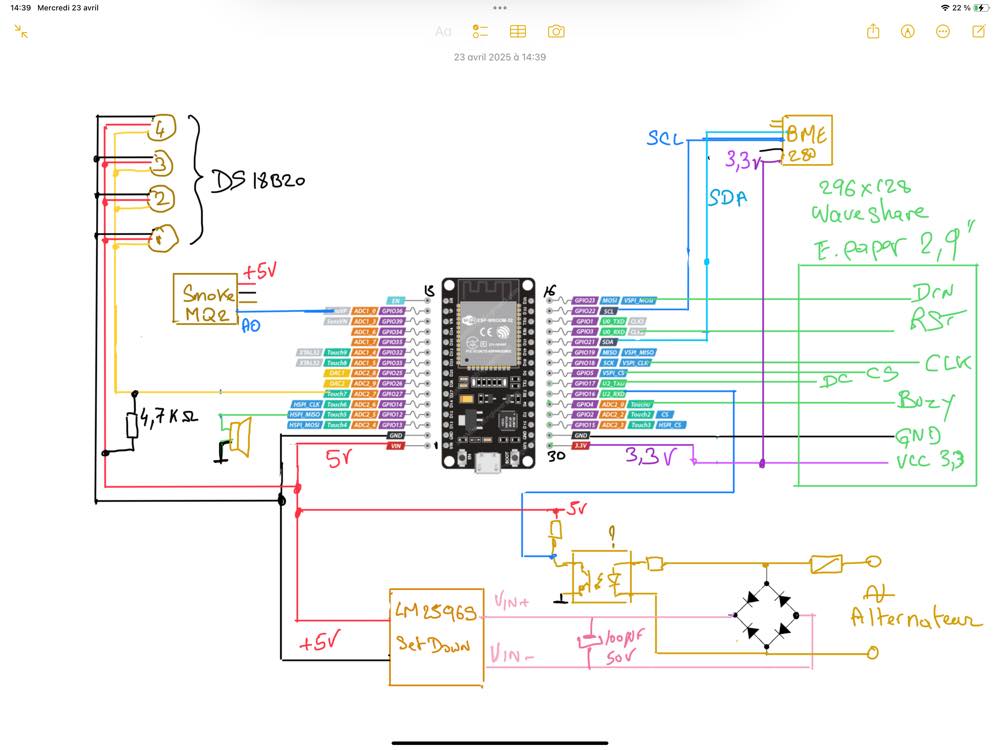 14:39 Mercredi 23 avril
22 %
Aa
23 avril 2025 à 14:39
4
3
2
DS 18B20
SCL
BME
280
3,3v
SDA
296x128
Waveshare
E.paper 2,9"
Smoke
MQ2
+5V
A0
15
16
EN
ADC1_0 GPIO36
SensVN ADC1_3 GPIO39
ADC1_6 GPIO34
ADC1_7 GPIO35
XTAL32 Touch9 ADC1_4 GPIO32
XTAL32 Touch8 ADC1_5 GPIO33
DAC1 ADC2_8 GPIO25
DAC2 ADC2_9 GPIO26
Touch7 ADC2_7 GPIO27
HSPI_CLK Touch6 ADC2_6 GPIO14
HSPI_MISO Touch5 ADC2_5 GPIO12
HSPI_MOSI Touch4 ADC2_4 GPIO13
GND
VIN
GPIO23 MOSI VSPI_MOSI
GPIO22 SCL
GPIO1 U0_TXD CLK3
GPIO3 U0_RXD CLK2
GPIO21 SDA
GPIO19 MISO VSPI_MISO
GPIO18 SCK VSPI_CLK
GPIO5 VSPI_CS
GPIO17 U2_TXD
GPIO16 U2_RXD
GPIO4 ADC2_0 Touch0
GPIO2 ADC2_2 Touch2 CS
GPIO15 ADC2_3 Touch3 HSPI_CS
GND
3.3V
1
30
DIN
RST
CLK
DC CS
BUZY
GND
VCC 3,3
4,7KΩ
5v
3,3V
5v
?
LM2596S
Set Down
+5V
VIN+
VIN-
100µF
50v
Alternateur